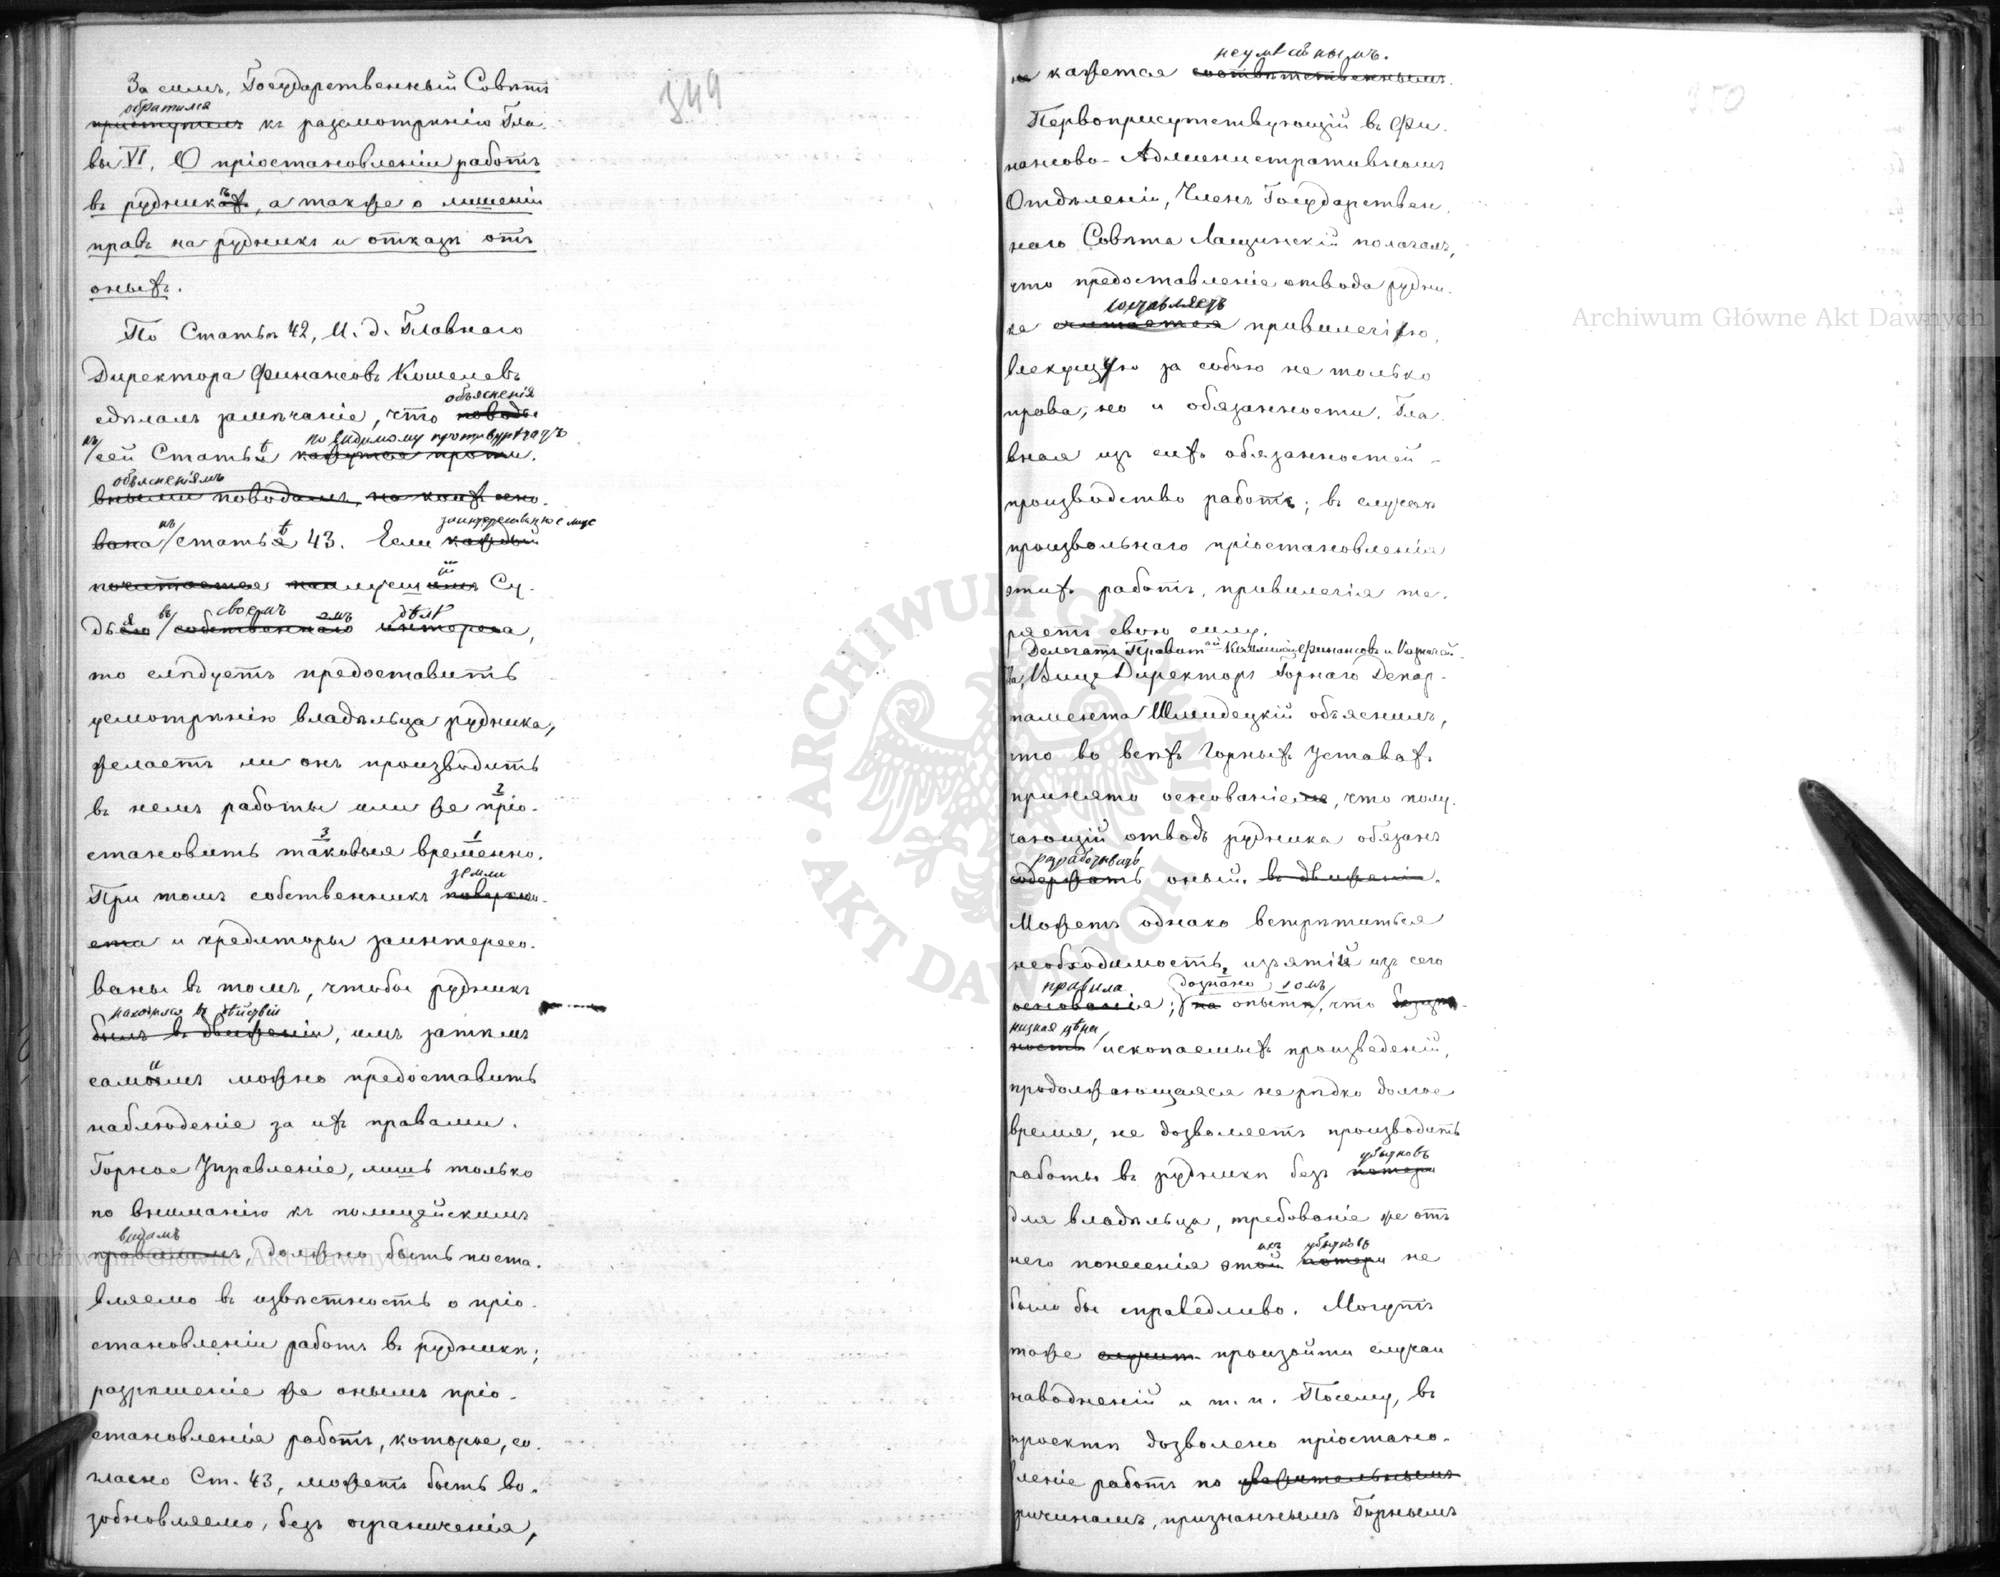 349
За симъ, Государственный Совѣтъ
обратился
приступилъ къ разсмотрѣнію Гла-
вы VI. О пріостановленіи работъ
въ рудникахъ, а также о лишеніи
правъ на рудники и отказѣ отъ
оныхъ.
По Статьѣ 42, И. д. Главнаго
Директора Финансовъ Кошелевъ
объясненія
сдѣлалъ замѣчаніе, что поводы
къ по видимому противурѣчатъ
сей Статьѣ кажутся проти-
объясненіямъ
вными поводамъ, на коихъ осно-
къ заинтересованное лице
вана статьѣ 43. Если каждый
почитается наилучшій Су-
въ своемъ дѣлѣ
дья собственнаго интереса,
то слѣдуетъ предоставить
усмотрѣнію владѣльца рудника,
желаетъ ли онъ производить
2
въ немъ работы или же пріо-
3 1
становить таковыя временно.
земли
При томъ собственникъ поверхно-
ста и кредиторы заинтересо-
ваны въ томъ, чтобы рудникъ
находился въ дѣйствіи
былъ въ движеніи, имъ затѣмъ
самимъ можно предоставить
наблюденіе за ихъ правами.
Горное Управленіе, лишь только
по вниманію къ полицейскимъ
видамъ
правиламъ, должно быть поста-
вляемо въ извѣстность о пріо-
становленіи работъ въ рудникѣ;
разрѣшеніе же онымъ пріо-
становленія работъ, которые, со-
гласно Ст. 43, можетъ быть во-
зобновляемо, безъ ограниченія,
350
неумѣстнымъ.
не кажется соотвѣтственнымъ.
Первоприсутствующій въ Фи-
нансово-Административномъ
Отдѣленіи, Членъ Государствен-
наго Совѣта Лащинскій полагалъ,
что предоставленіе отвода рудни-
составляетъ
ка считается привилегію,
влекущую за собою не только
права, но и обязанности. Гла-
вная изъ сихъ обязанностей -
производство работъ; въ случаѣ
произвольнаго пріостановленія
этихъ работъ, привилегія те-
ряетъ свою силу.
Делегатъ Правит.ой Коммисіи Финансовъ и Казначей-
ства, Вице Директоръ Горнаго Депар-
тамента Шмидецкій объяснилъ,
что во всѣхъ Горныхъ Уставахъ
принято основаніемъ, что полу-
чающій отводъ рудника обязанъ
разработывать
содержать оный. въ движеніи.
Можетъ однако встрѣтиться
необходимость изъятія изъ сего
правила дознано омъ
основанія; на опытѣ, что
низкая цѣна
ность ископаемыхъ произведеній,
продолжающаяся не рѣдко долгое
время, не дозволяетъ производить
убытковъ
работы въ рудникѣ безъ потери
для владѣльца, требованіе же отъ
ихъ убытковъ
него понесенія этой потери не
было бы справедливо. Могутъ
тоже случит произойти случаи
наводненій и т. п. Посему, въ
проектѣ дозволено пріостано-
вленіе работъ по уважительнымъ
причинамъ, признаннымъ Горнымъ
ARCHIWUM GŁÓWNE AKT DAWNYCH
Archiwum Główne Akt Dawnych
Archiwum Główne Akt Dawnych